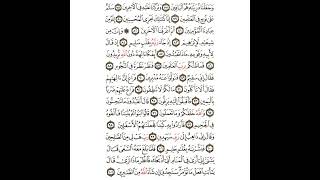 وَجَعَلْنَا ذُرِّيَّتَهُۥ هُمُ ٱلْبَاقِينَ ٧٧ وَتَرَكْنَا عَلَيْهِ فِى ٱلْـَٔاخِرِينَ ٧٨ سَلَـٰمٌ
عَلَىٰ نُوحٍ فِى ٱلْعَـٰلَمِينَ ٧٩ إِنَّا كَذَٰلِكَ نَجْزِى ٱلْمُحْسِنِينَ ٨٠ إِنَّهُۥ مِنْ
عِبَادِنَا ٱلْمُؤْمِنِينَ ٨١ ثُمَّ أَغْرَقْنَا ٱلْـَٔاخَرِينَ ٨٢ ۞ وَإِنَّ مِن
شِيعَتِهِۦ لَإِبْرَٰهِيمَ ٨٣ إِذْ جَآءَ رَبَّهُۥ بِقَلْبٍ سَلِيمٍ ٨٤ إِذْ قَالَ
لِأَبِيهِ وَقَوْمِهِۦ مَاذَا تَعْبُدُونَ ٨٥ أَئِفْكًا ءَالِهَةً دُونَ ٱللَّهِ تُرِيدُونَ ٨٦
فَمَا ظَنُّكُم بِرَبِّ ٱلْعَـٰلَمِينَ ٨٧ فَنَظَرَ نَظْرَةً فِى ٱلنُّجُومِ ٨٨
فَقَالَ إِنِّى سَقِيمٌ ٨٩ فَتَوَلَّوْا۟ عَنْهُ مُدْبِرِينَ ٩٠ فَرَاغَ إِلَىٰٓ ءَالِهَتِهِمْ
فَقَالَ أَلَا تَأْكُلُونَ ٩١ مَا لَكُمْ لَا تَنطِقُونَ ٩٢ فَرَاغَ عَلَيْهِمْ ضَرْبًۢا
بِٱلْيَمِينِ ٩٣ فَأَقْبَلُوٓا۟ إِلَيْهِ يَزِفُّونَ ٩٤ قَالَ أَتَعْبُدُونَ مَا تَنْحِتُونَ ٩٥
وَٱللَّهُ خَلَقَكُمْ وَمَا تَعْمَلُونَ ٩٦ قَالُوا۟ ٱبْنُوا۟ لَهُۥ بُنْيَـٰنًا فَأَلْقُوهُ
فِى ٱلْجَحِيمِ ٩٧ فَأَرَادُوا۟ بِهِۦ كَيْدًا فَجَعَلْنَـٰهُمُ ٱلْأَسْفَلِينَ ٩٨
وَقَالَ إِنِّى ذَاهِبٌ إِلَىٰ رَبِّى سَيَهْدِينِ ٩٩ رَبِّ هَبْ لِى مِنَ ٱلصَّـٰلِحِينَ ١٠٠
فَبَشَّرْنَـٰهُ بِغُلَـٰمٍ حَلِيمٍ ١٠١ فَلَمَّا بَلَغَ مَعَهُ ٱلسَّعْىَ قَالَ
يَـٰبُنَىَّ إِنِّىٓ أَرَىٰ فِى ٱلْمَنَامِ أَنِّىٓ أَذْبَحُكَ فَٱنظُرْ مَاذَا تَرَىٰ ۚ قَالَ
يَـٰٓأَبَتِ ٱفْعَلْ مَا تُؤْمَرُ ۖ سَتَجِدُنِىٓ إِن شَآءَ ٱللَّهُ مِنَ ٱلصَّـٰبِرِينَ ١٠٢